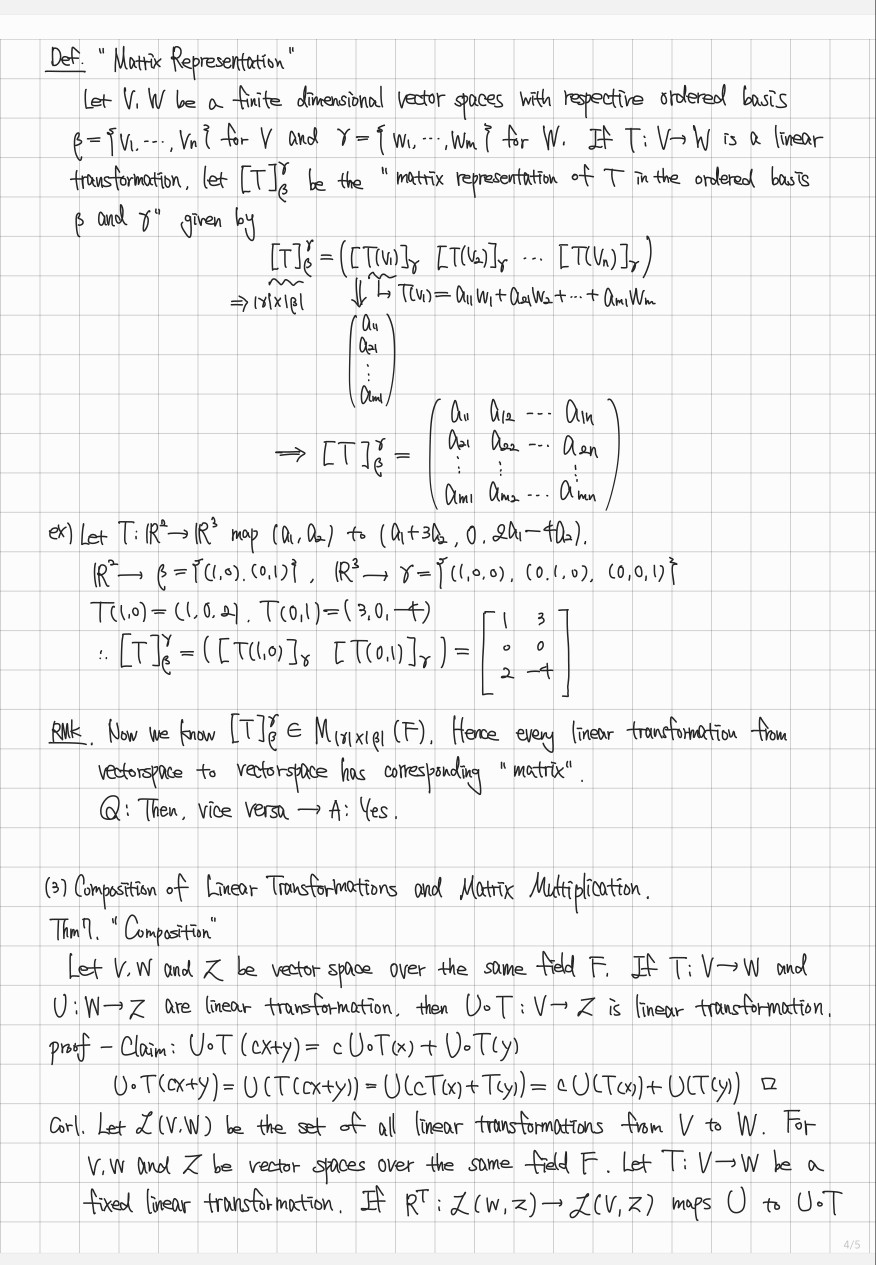 Def. "Matrix Representation"
Let V, W be a finite dimensional vector spaces with respective ordered basis
β = {v₁, ⋯, vₙ} for V and γ = {w₁, ⋯, wₘ} for W. If T : V → W is a linear
transformation, let [T]_β^γ be the "matrix representation of T in the ordered basis
β and γ" given by
[T]_β^γ = ([T(v₁)]_γ [T(v₂)]_γ ⋯ [T(vₙ)]_γ)
⇒ |γ|×|β| ⇓ ↳ T(v₁) = a₁₁w₁ + a₂₁w₂ + ⋯ + aₘ₁wₘ
a₁₁
a₂₁
⋮
aₘ₁
a₁₁ a₁₂ ⋯ a₁ₙ
⟹ [T]_β^γ = a₂₁ a₂₂ ⋯ a₂ₙ
⋮ ⋮ ⋮
aₘ₁ aₘ₂ ⋯ aₘₙ
ex) Let T : ℝ² → ℝ³ map (a₁, a₂) to (a₁+3a₂, 0, 2a₁−4a₂).
ℝ² → β = {(1,0), (0,1)}, ℝ³ → γ = {(1,0,0), (0,1,0), (0,0,1)}
T(1,0) = (1,0,2), T(0,1) = (3,0,−4)
1 3
∴ [T]_β^γ = ([T(1,0)]_γ [T(0,1)]_γ) = 0 0
2 −4
RMK. Now we know [T]_β^γ ∈ M_{|γ|×|β|}(F). Hence every linear transformation from
vectorspace to vectorspace has corresponding "matrix".
Q: Then, vice versa → A: Yes.
(3) Composition of Linear Transformations and Matrix Multiplication.
Thm 7. "Composition"
Let V, W and Z be vector space over the same field F. If T : V → W and
U : W → Z are linear transformation, then U∘T : V → Z is linear transformation.
proof - Claim: U∘T(cx+y) = cU∘T(x) + U∘T(y)
U∘T(cx+y) = U(T(cx+y)) = U(cT(x)+T(y)) = cU(T(x)) + U(T(y)) □
Cor1. Let ℒ(V,W) be the set of all linear transformations from V to W. For
V, W and Z be vector spaces over the same field F. Let T : V → W be a
fixed linear transformation. If R^T : ℒ(W,Z) → ℒ(V,Z) maps U to U∘T
4/5